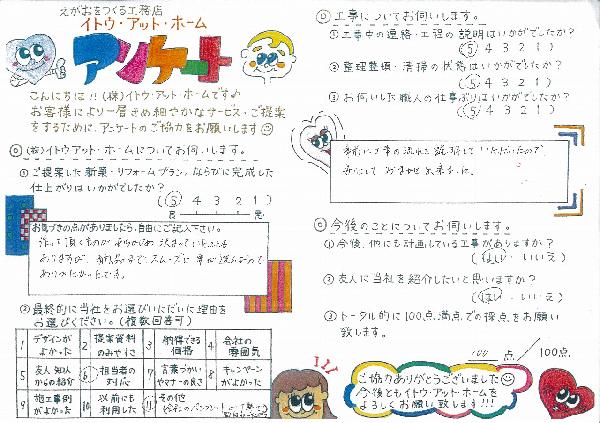 えがおをつくる工務店
イトウ・アット・ホーム
アンケート
こんにちは!! (株)イトウ・アット・ホームです♪
お客様により一層きめ細やかなサービス・ご提案
をするために、アンケートのご協力をお願いします☺
◎ (株)イトウアット・ホームについてお伺いします。
① ご提案した新築・リフォームプラン、ならびに完成した
仕上がりはいかがでしたか?
(⑤ 4 3 2 1)
良 悪
お気づきの点がありましたら、自由にご記入下さい。
② 最終的に当社をお選びいただいた理由を
お選びください。(複数回答可)
1 デザインがよかった 2 提案資料のみやすさ 3 納得できる価格 4 会社の雰囲気
5 友人・知人からの紹介 ⑥ 担当者の対応 7 言葉づかいやマナーの良さ 8 キャンペーンがよかった
9 施工事例がよかった 10 以前にも利用した ⑪ その他
◎ 工事についてお伺いします。
① 工事中の連絡・工程の説明はいかがでしたか?
(⑤ 4 3 2 1)
② 整理整頓・清掃の状態はいかがでしたか?
(⑤ 4 3 2 1)
③ お伺いした職人の仕事ぶりはいかがでしたか?
(⑤ 4 3 2 1)
事前に工事の流れを説明していただいたので
安心しておまかせ出来ました。
◎ 今後のことについてお伺いします。
① 今後、他にも計画している工事がありますか?
(はい・いいえ)
② 友人に当社を紹介したいと思いますか?
(はい・いいえ)
③ トータル的に100点満点での採点をお願い
致します。
100 点/100点
ご協力ありがとうございました☺
今後ともイトウ・アット・ホームを
よろしくお願い致します!!!